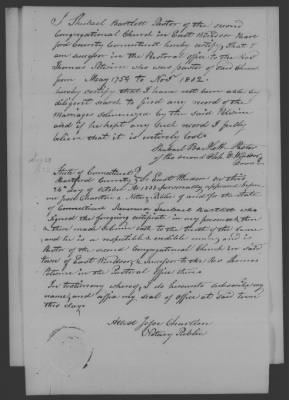 I Shubael Bartlett Pastor of the second
Congregational Church in East Windsor Hart
ford County Connecticut hereby certify, that I
am successor in the Pastoral office to the Rev
Thomas Potwine who was pastor of said Church
from May 1754 to Novr 1802. I
hereby certify that I have not been able by
diligent search to find any record of the
Marriages solemnized by the said Potwine
and if he kept any such record I fully
believe that it is entirely lost.
Shubael Bartlett Pastor
of the second Chh E. Windsor
State of Connecticut
Hartford County East Windsor on this
26th day of October personally appeared before
me a Notary Public of and for the State
of Connecticut Shubael Bartlett who
signed the foregoing certificate in my presence & then
made solemn oath to the truth of the same
and he is a respectable & credible man, and is
Pastor of the second Congregational Church in said
town of East Windsor & successor to the Rev Thomas
Potwine in the Pastoral office there.
In testimony whereof, I do hereunto subscribe my
name, and affix my seal of office at said town
this day
Attest
Notary Public